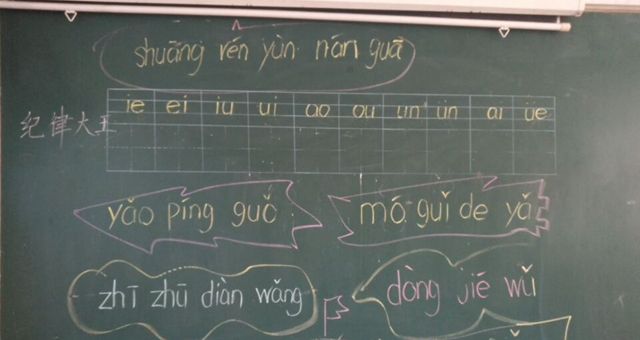 shuāng rén yùn nán guā
纪律大王 ie ei iu ui ao ou un ün ai üe
yǎo píng guǒ mó guǐ de yǎ
zhī zhū diàn wǎng dòng jié wǔ